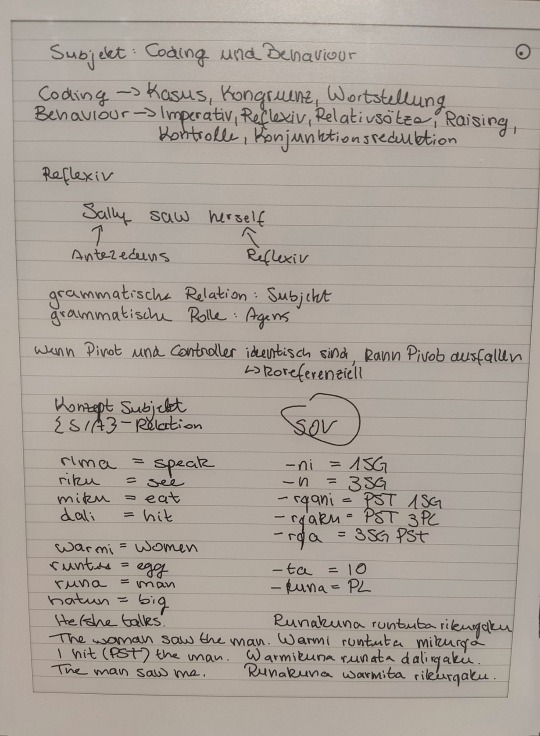 Subjekt: Coding und Behaviour
Coding → Kasus, Kongruenz, Wortstellung
Behaviour → Imperativ, Reflexiv, Relativsätze, Raising,
Kontrolle, Konjunktionsreduktion
Reflexiv
Sally saw herself
Antezedens Reflexiv
grammatische Relation: Subjekt
grammatische Rolle: Agens
wenn Pivot und Controller identisch sind, kann Pivot ausfallen
↳ koreferenziell
Konzept Subjekt
{S/A}-Relation
SOV
rima = speak -ni = 1SG
riku = see -n = 3SG
miku = eat -rqani = PST 1SG
dali = hit -rqaku = PST 3PL
-rqa = 3SG PST
warmi = women
runtu = egg -ta = IO
runa = man -kuna = PL
hatun = big
He/she talks. Runakuna runtuta rikurqaku
The woman saw the man. Warmi runtuta mikurqa
I hit (PST) the man. Warmikuna runata dalirqaku.
The man saw me. Runakuna warmita rikurqaku.